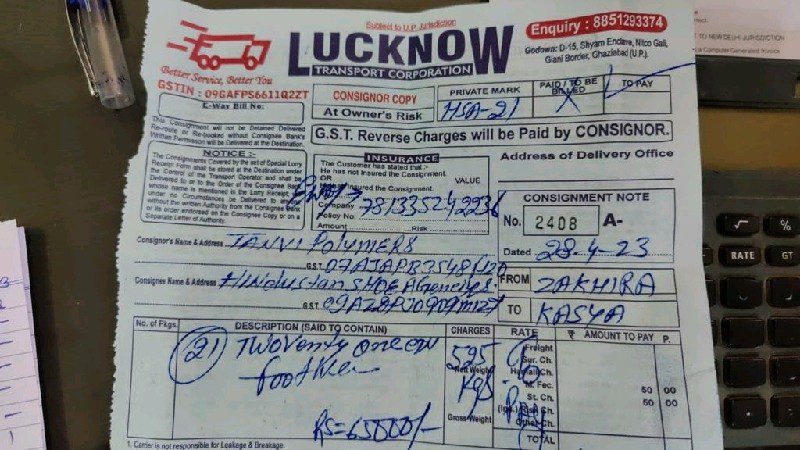 Subject to U.P. Jurisdiction
LUCKNOW
TRANSPORT CORPORATION
Enquiry : 8851293374
Godown: D-15, Shyam Enclave, Nitco Gali,
Giani Border, Ghaziabad (U.P.)
Better Service, Better You
GSTIN : 09GAFPS6611Q2ZT
E-Way Bill No:
CONSIGNOR COPY
At Owner's Risk
PRIVATE MARK
HSA-21
PAID / TO BE BILLED
X
TO PAY
G.S.T. Reverse Charges will be Paid by CONSIGNOR.
This Consignment will not be Detained Delivered
Re-route or Re-booked without Consignee Bank's
Written Permission will be Delivered at the Destination.
NOTICE :-
The Consignments Covered by the set of Special Lorry
Receipt Form shall be stored at the Destination under
the Control of the Transport Operator and shall be
Delivered to or to the Order of the Consignee Bank
whose name is mentioned in the Lorry Receipt.
under no Circumstances be Delivered to anyone
without the written Authority from the Consignee Bank
or its order endorsed on the Consignee Copy or on a
Separate Letter of Authority.
INSURANCE
The Customer has stated that :-
He has not Insured the Consignment.
OR
Insured the Consignment.
VALUE
Company
781335242236
Policy No.
Amount
Risk
Address of Delivery Office
CONSIGNMENT NOTE
No. 2408 A-
Dated 28-4-23
Consignor's Name & Address TANVI POLYMERS
GST
Consignee Name & Address Hindustan SHOE Agencies
GST
FROM ZAKHIRA
TO KASYA
No. of Pkgs.
DESCRIPTION (SAID TO CONTAIN)
CHARGES
RATE
₹ AMOUNT TO PAY P.
21
525
Kgs
RS=65000/-
Net Weight
Gross Weight
Freight
Sur. Ch.
Hamali Ch.
M. Fec. 50 00
St. Ch. 50 00
Other Ch.
TOTAL
1. Carrier is not responsible for Leakage & Breakage.
TO NEW DELHI JURISDICTION
a Computer Generated Invoice
√
%
RATE
GT
7
4
1
0